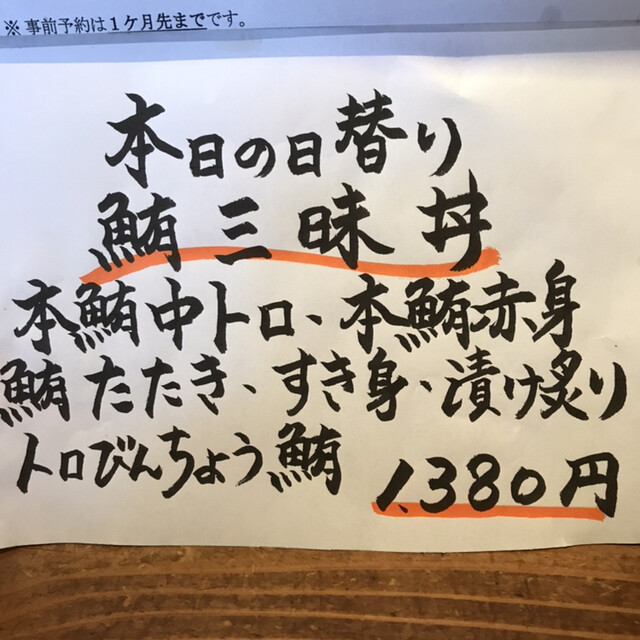 ※ 事前予約は１ケ月先までです。
本日の日替り
鮪三昧丼
本鮪中トロ、本鮪赤身
鮪たたき、すき身、漬け炙り
トロびんちょう鮪 1,380円